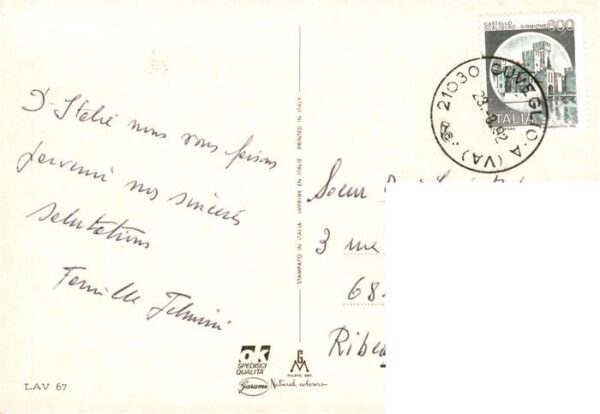 CASTELLO
SCALIGERO - SIRMIONE 600
ITALIA
21030 CUVEGLIO-A (VA)
82
D'Italie nous vous faisons
parvenir nos sincères
salutations
Famille
STAMPATO IN ITALIA IMPRIMÉ EN ITALIE PRINTED IN ITALY
Soeur
3 rue
68
Ribea
ok
SPEDISCI
QUALITÀ
Garami
Natural colours
GM
LAV 67